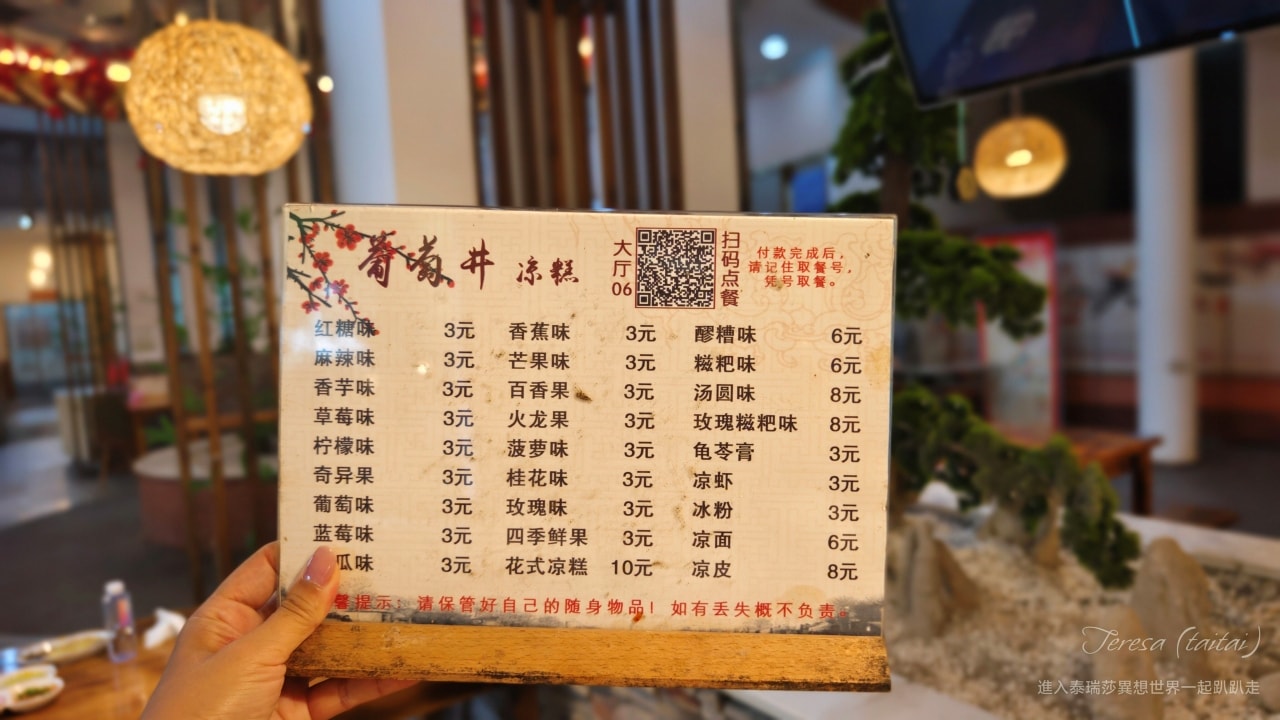 葡萄井 凉糕
大厅06
扫码点餐
付款完成后，
请记住取餐号，
凭号取餐。
红糖味 3元 香蕉味 3元 醪糟味 6元
麻辣味 3元 芒果味 3元 糍粑味 6元
香芋味 3元 百香果 3元 汤圆味 8元
草莓味 3元 火龙果 3元 玫瑰糍粑味 8元
柠檬味 3元 菠萝味 3元 龟苓膏 3元
奇异果 3元 桂花味 3元 凉虾 3元
葡萄味 3元 玫瑰味 3元 冰粉 3元
蓝莓味 3元 四季鲜果 3元 凉面 6元
瓜味 3元 花式凉糕 10元 凉皮 8元
馨提示：请保管好自己的随身物品！如有丢失概不负责。
Teresa (taitai)
進入泰瑞莎異想世界一起趴趴走